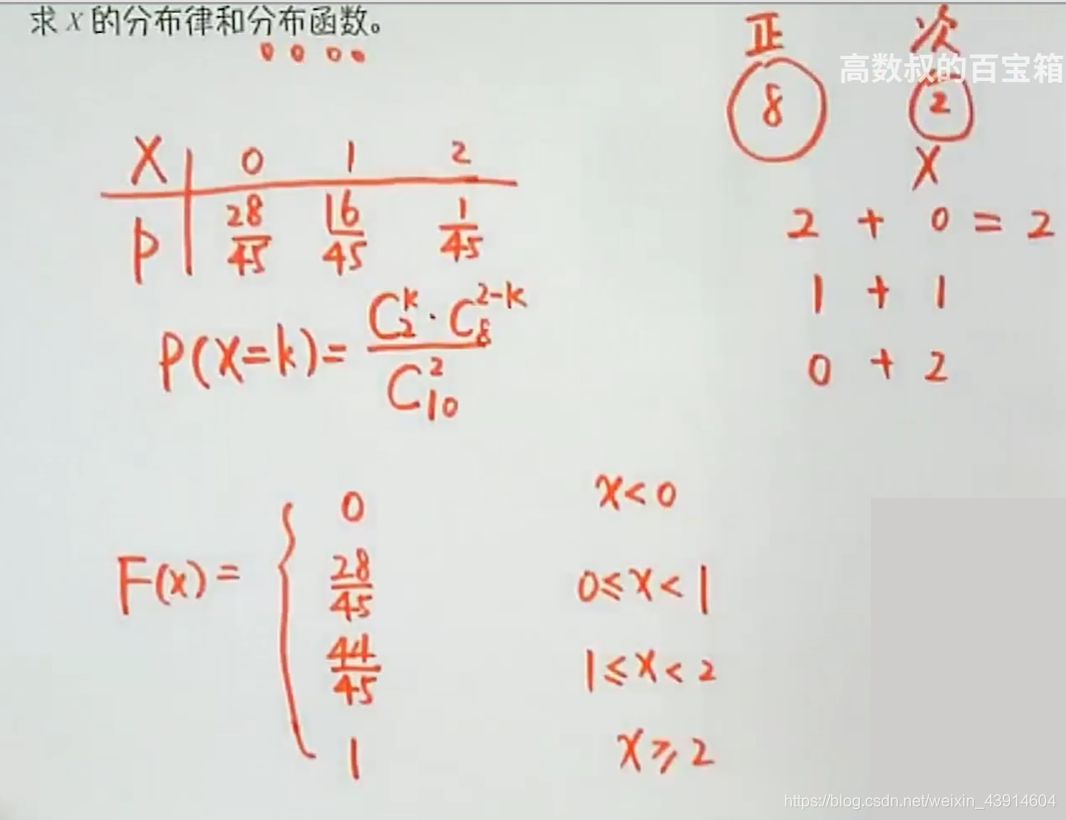 求 X 的分布律和分布函数。
正 次
高数叔的百宝箱
8 2
X
X 0 1 2
P 28/45 16/45 1/45
2 + 0 = 2
1 + 1
0 + 2
P(X=k)= C₂ᵏ·C₈²⁻ᵏ / C₁₀²
F(x)= { 0 x<0
28/45 0≤x<1
44/45 1≤x<2
1 x≥2
https://blog.csdn.net/weixin_43914604